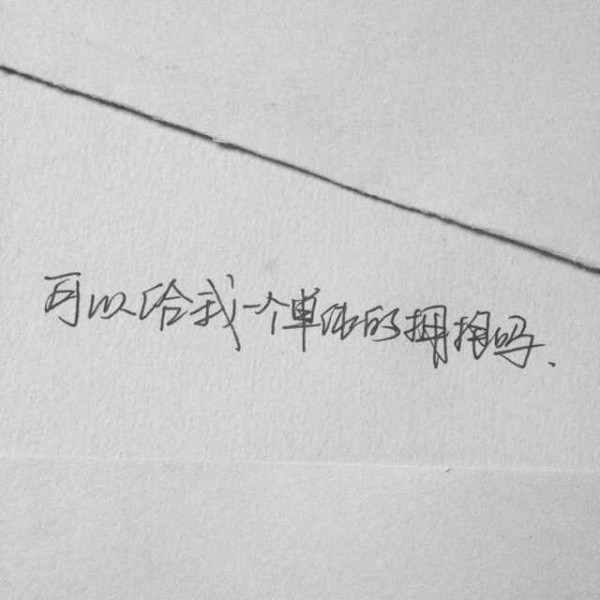 可以给我一个单纯的拥抱吗.